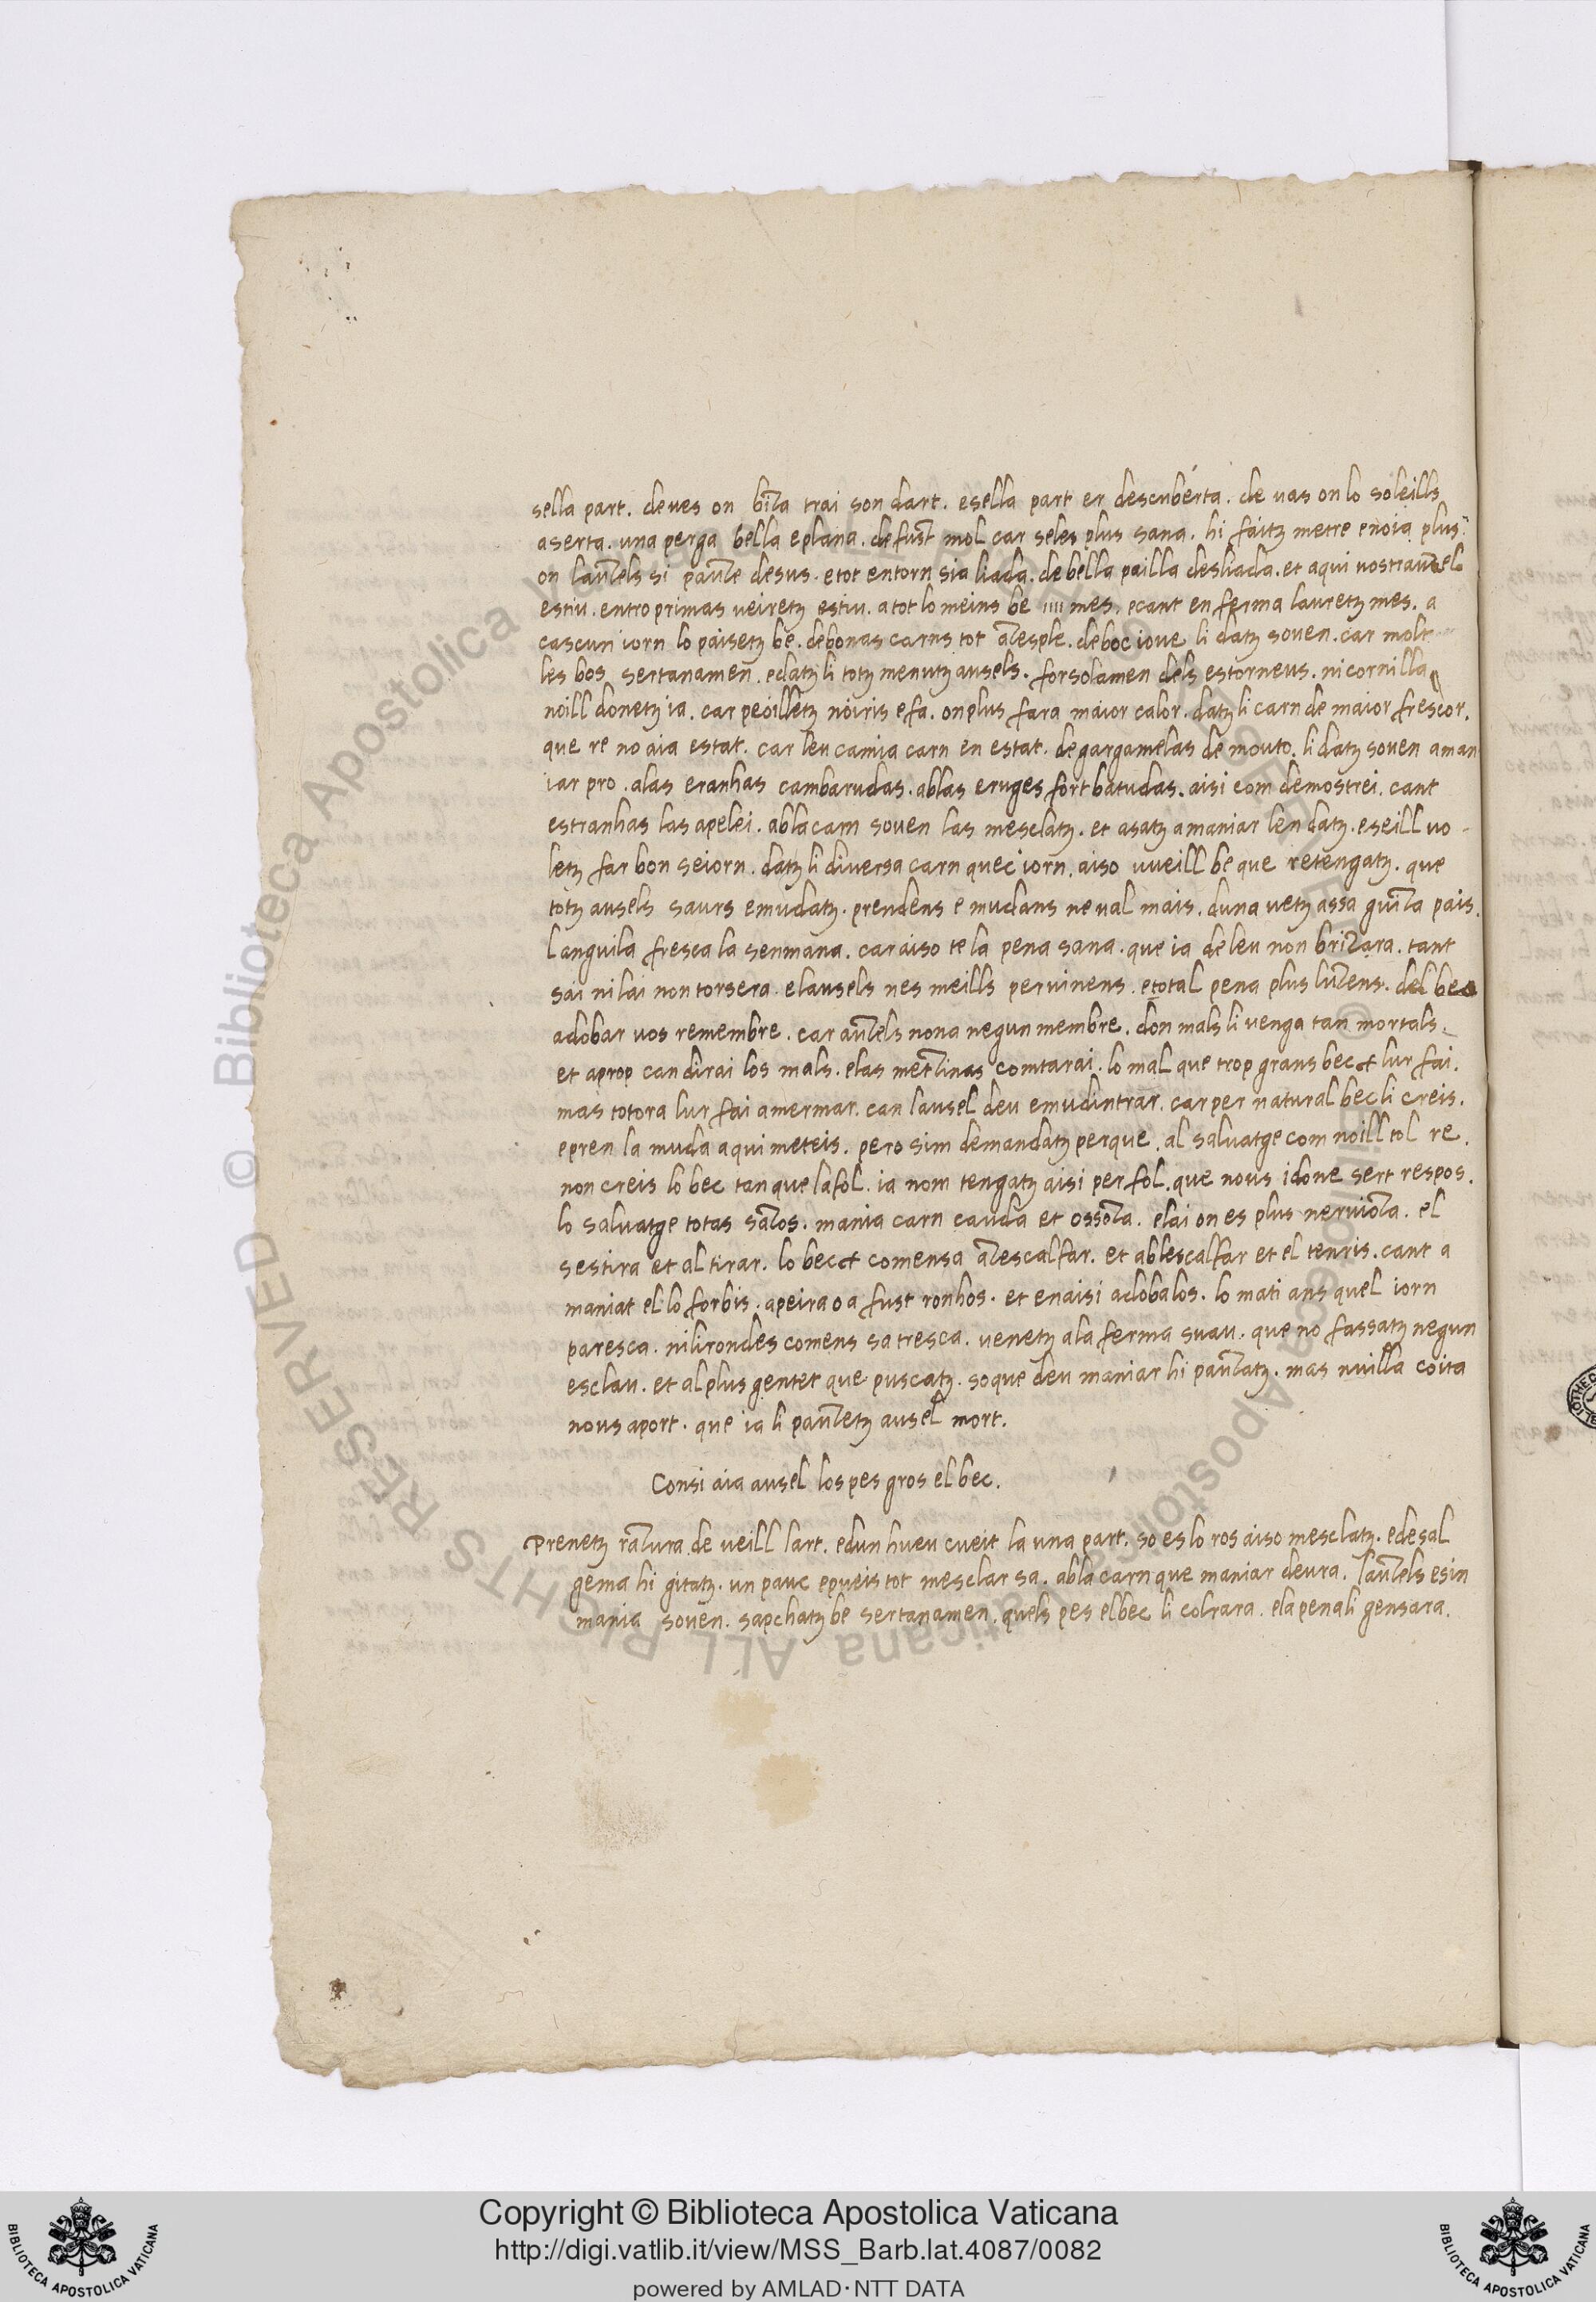 sella part. deues on biza trai son dart. esella part er descubérta. de uas on lo soleills
aserta. una perga bella eplana. de fust mol car seles plus sana. hi faitz metre enoia plus
on lauzels si pauze desus. e tot entorn sia liada. de bella pailla desliada. et aqui uostrauzel
estiu. entro primas ueiretz estiu. a tot lo meins be IIII mes. ecant en ferma lauretz mes. a
cascun iorn lo paisetz be. debonas carns tot azesple. deboc ioue li datz souen. car molt
les bos sertanamen. edatz li totz menutz ausels. forsolamen dels estorneus. ni cornilla
noill donetz ia. car peoilletz noiris e fa. on plus fara maior calor. datz li carn de maior frescor.
que re no aia estat. car leu camia carn en estat. degargamelas de mouto. li datz souen aman
iar pro. alas eranhas cambarudas. ablas eruges fort batudas. aisi com demostrei. cant
estranhas las apelei. abla carn souen las mesclatz. et asatz amaniar len datz. eseill uo-
letz far bon seiorn. datz li diuersa carn quec iorn. aiso uueill be que retengatz. que
totz ausels saurs emudatz. prendens e mudans ne ual mais. duna uetz assa guiza pais.
languila fresca la senmana. car aiso te la pena sana. que ia de leu non brizara. tant
sai ni lai non torsera. elausels nes meills peruinens. etotal pena plus luzens. del bec
adobar uos remembre. car auzels nona negun membre. don mals li uenga tan mortals.
et aprop can dirai los mals. elas metzinas comtarai. lo mal que trop grans becs lur fai.
mas totora lur fai amermar. can lausel deu emudintrar. car per natural bec li creis.
epren la muda aqui meteis. pero sim demandatz perque. al saluatge com noill tol re.
non creis lo bec tan que lafol. ia nom tengatz aisi per fol. que nous idone sert respos.
lo saluatge totas sazos. mania carn cauda et ossoza. elai on es plus neruioza. el
sestira et al tirar. lo becs comensa azescalfar. et ablescalfar et el tenris. cant a
maniat el lo forbis. apeira o a fust ronhos. et enaisi adobalos. lo mati ans quel iorn
paresca. nilirondes comens sa tresca. uenetz ala ferma suau. que no fassatz negun
esclau. et al plus gentet que puscatz. soque deu maniar hi pauzatz. mas nuilla coita
nous aport. que ia li pauzetz ausel mort.
Consi aia ausel los pes gros el bec.
Prenetz razura de ueill lart. edun hueu cueit la una part. so es lo ros aiso mesclatz. edesal
gema hi gitatz. un pauc epueis tot mesclar sa. abla carn que maniar deura. lauzels esin
mania souen. sapchatz be sertanamen. quels pes elbec li colrara. ela penali gensara.
© Biblioteca Apostolica Vaticana ALL RIGHTS RESERVED
Copyright © Biblioteca Apostolica Vaticana
http://digi.vatlib.it/view/MSS_Barb.lat.4087/0082
powered by AMLAD·NTT DATA
BIBLIOTECA APOSTOLICA VATICANA
BIBLIOTECA APOSTOLICA VATICANA